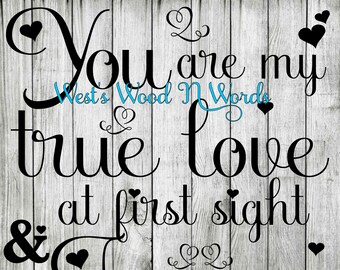 You are my
West's Wood N Words
true love
at first sight
&